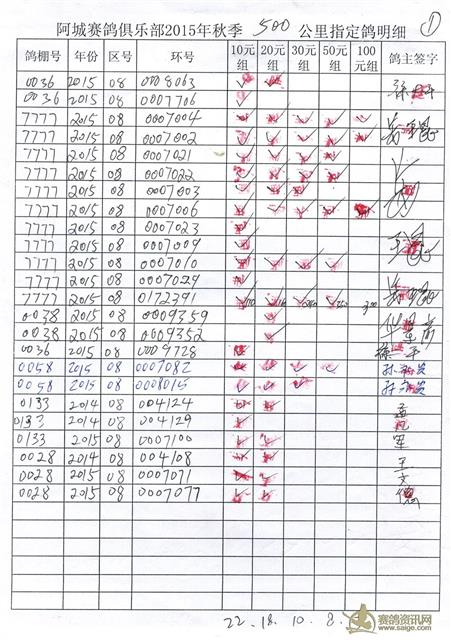 阿城赛鸽俱乐部2015年秋季 500 公里指定鸽明细 ①
鸽棚号 年份 区号 环号 10元组 20元组 30元组 50元组 100元组 鸽主签字
0036 2015 08 0008063
0036 2015 08 0007706
7777 2015 08 0007004
7777 2015 08 0007002
7777 2015 08 0007021
7777 2015 08 0007022
7777 2015 08 0007003
7777 2015 08 0007006
7777 2015 08 0007023
7777 2015 08 0007009
7777 2015 08 0007010
7777 2015 08 0007029
7777 2015 08 0172391
0038 2015 08 0009359
0038 2015 08 0009352
0036 2015 08 0009728
0058 2015 08 0007082
0058 2015 08 0008015
0133 2014 08 004124 孟
0133 2014 08 004129
0133 2015 08 0007100 军
0028 2014 08 004108 王
0028 2015 08 0007071 文
0028 2015 08 0007077 德
22. 18. 10. 8.
赛鸽资讯网
www.saige.com